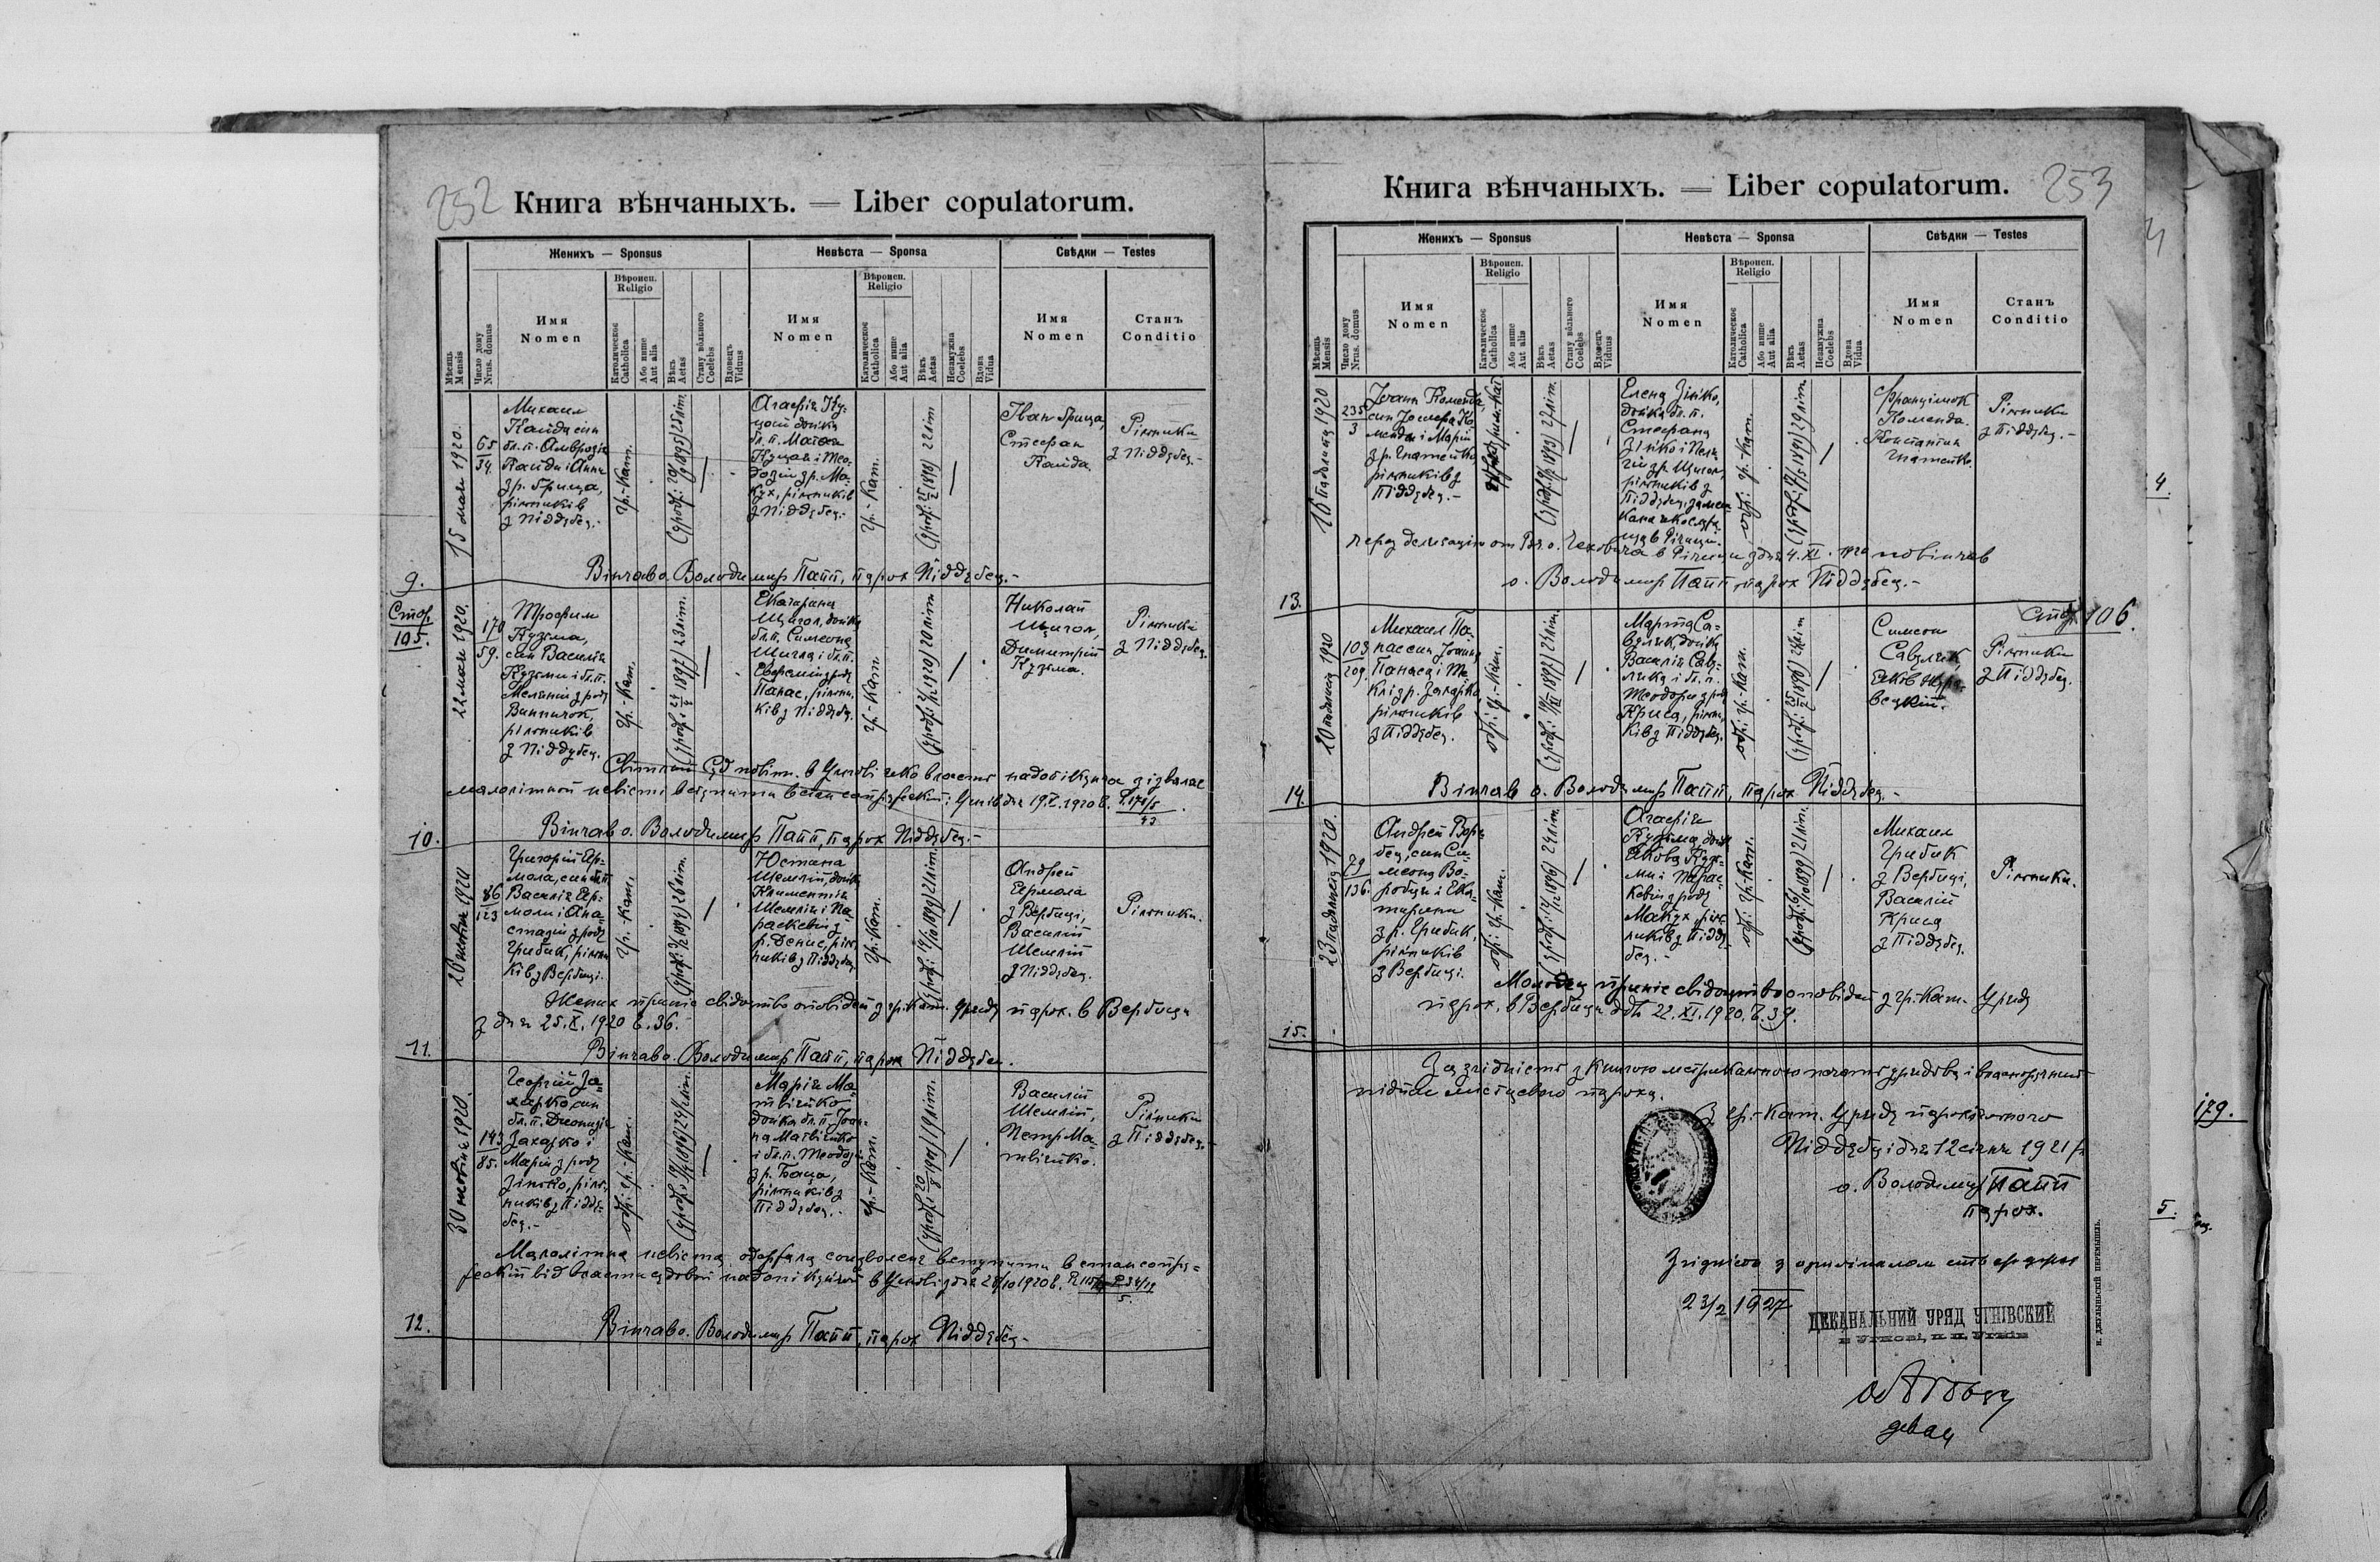 252
Книга вѣнчаныхъ. — Liber copulatorum.
Женихъ — Sponsus
Невѣста — Sponsa
Свѣдки — Testes
Мѣсяць Mensis
Число дому Nrus. domus
Имя Nomen
Вѣроисп. Religio
Католическое Catholica
Або инше Aut alia
Вѣкъ Aetas
Стану вольного Coelebs
Вдовець Viduus
Имя Nomen
Вѣроисп. Religio
Католическое Catholica
Або инше Aut alia
Вѣкъ Aetas
Незамужна Coelebs
Вдова Vidua
Имя Nomen
Станъ Conditio
9.
15 мая 1920.
65
34
Михаил
Кайда син
бл. п. Амврозія
Кайди і Анни
з р. Грица,
рільників
з Піддубец.-
гр.-кат.
25 літ
Агафія Ку-
цай донька
бл. п. Матея
Куцая і Тео-
дозії з р. Ма-
кух, рільників
з Піддубец.-
гр.-кат.
22 літ
Іван Грица,
Стефан
Кайда.
Рільники
з Піддубец.-
Вінчав о. Володимир Папп, парох Піддубец.-
Стор.
105.
10.
22 мая 1920.
170
59.
Трофим
Кузьма,
син Василія
Кузьми і бл. п.
Меланії з роду
Винничок,
рільників
з Піддубец.
гр.-кат.
1897) 23 літ.
Екатарина
Щигол, донька
бл. п. Симеона
Щигла і бл. п.
Евфемії з роду
Панас, рільни-
ків з Піддубец.
гр.-кат.
20 літ
Николай
Щигол,
Димитрій
Кузьма.
Рільники
з Піддубец.
Світлий Суд повіт. в Угнові яко власть надопікунча дізваляє
малолітній невісті вступити в стан супружеский: Угнів дня 19.V.1920
Вінчав о. Володимир Папп, парох Піддубец.-
11.
26 жовтня 1920
86
123
Григорій Єр-
мола, син бл. п.
Василія Єр-
моли і Ана-
стазії з роду
Грибик, рільни-
ків з Вербиці.
гр. кат.
26 літ.
Юстина
Шемлій, донька
Климентія
Шемлія і Па-
раскевії з
р. Денис, ріль-
ників з Піддубец.
гр.-кат.
21 літ.
Андрей
Єрмола
з Вербиці,
Василій
Шемлій
з Піддубец.
Рільники.
Жених приніс свідоцтво оповідей з гр.-кат. Уряду парох. в Вербици
з дня 25.X.1920 Ч. 36.
Вінчав о. Володимир Папп, парох Піддубец.
12.
30 жовтня 1920.
143
85.
Георгій За-
харко, син
бл. п. Дионизія
Захарко і
Марії з роду
Зінько, ріль-
ників з Підду-
бец.-
обр. гр.-кат.
24 літ.
Марія Ма-
твічко
донька бл. п. Іоан-
на Матвійко
і бл. п. Теодозії
з р. Баца,
рільників з
Піддубец.-
гр.-кат.
1901) 19 літ.
Василій
Шемлій,
Петр Ма-
твійко.
Рільники
з Піддубец.-
Малолітна невіста одержала созволенє вступити в стан супру-
жеский від власти судової надопікунчої в Угнові з дня 28/10 1920
Вінчав о. Володимир Папп, парох Піддубец.-
253
Книга вѣнчаныхъ. — Liber copulatorum.
Женихъ — Sponsus
Невѣста — Sponsa
Свѣдки — Testes
Мѣсяць Mensis
Число дому Nrus. domus
Имя Nomen
Вѣроисп. Religio
Католическое Catholica
Або инше Aut alia
Вѣкъ Aetas
Стану вольного Coelebs
Вдовець Viduus
Имя Nomen
Вѣроисп. Religio
Католическое Catholica
Або инше Aut alia
Вѣкъ Aetas
Незамужна Coelebs
Вдова Vidua
Имя Nomen
Станъ Conditio
13.
16 падолиста 1920
235
3
Іоанн Коменда,
син Йосифа Ко-
менди і Марії
з р. Гнатейко,
рільників з
Піддубец.-
рим.-кат.
1893) 27 літ.
Елена Зінько,
донька бл. п.
Стефана
Зінько і Пела-
гії з р. Щигол,
рільників з
Піддубец, замеш-
кана яко служ-
обр. гр.-кат.
1891) 29 літ.
Францішок
Коменда.
Константин
Гнатейко.
Рільники
з Піддубец.-
о. Володимир Папп, парох Піддубец.-
Стор. 106.
14.
20 падолиста 1920
103
209.
Михаил Па-
нас син Іоанна
Панаса і Те-
клі з р. Захарко,
рільників
з Піддубец.
обр. гр.-кат.
1897) 23 літ.
Марта Са-
вуляк, донька
Василія Саву-
ляка і бл. п.
Теодори з роду
Криса, рільни-
ків з Піддубец.
обр. гр.-кат.
Симеон
Савуляк,
Рільники
з Піддубец.
Вінчав о. Володимир Папп, парох Піддубец.-
15.
23 падолиста 1920.
79
136.
Андрей Воро-
бец, син Си-
меона Во-
робця і Ека-
тарини
з р. Грибик,
рільників
з Вербиці.
обр. гр.-кат.
1896) 24 літ.
Агафія
Кузьма, донька
Якова Кузь-
ми і Парас-
кевії з роду
Макух, ріль-
ників з Підду-
бец.-
обр. гр.-кат.
1899) 21 літ.
Михаил
Грибик
з Вербиці,
Василій
Криса
з Піддубец.
Рільники.
Молодец приніс свідоцтво оповідей з гр.-кат. Уряду
парох. в Вербици ддто 22.XI.1920. Ч. 39.
За згідність з книгою метрикальною печать урядова і власноручний
підпис місцевого пароха.
З гр.-кат. Уряду парохіяльного
Піддубці дня 12 січня 1921 р.
о. Володимир Папп
парох.
Згідність з оригіналом стверджує
23/2 1927
ДЕКАНАЛЬНИЙ УРЯД УГНІВСКИЙ
декан
4.
179.
5.